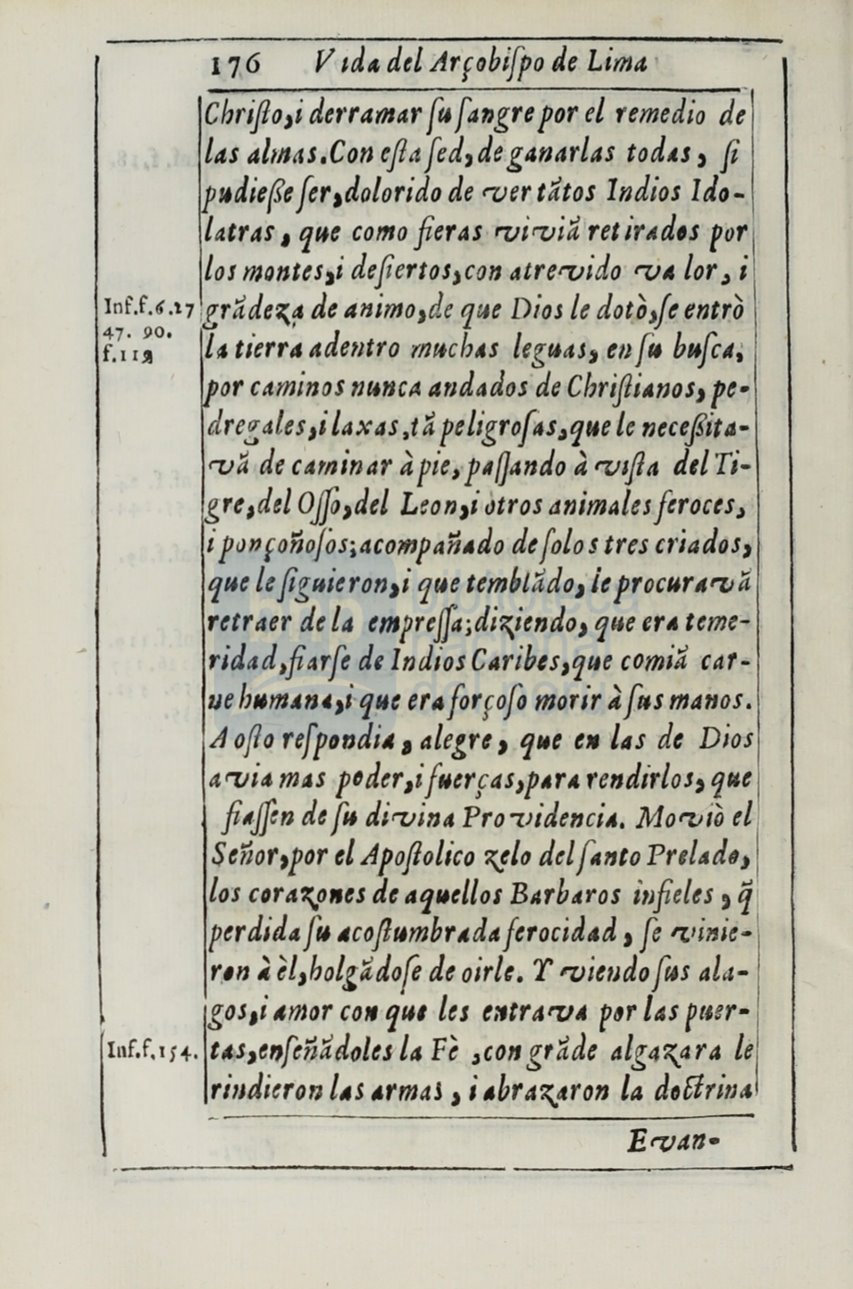 176 Vida del Arçobiſpo de Lima
Chriſto, i derramar ſu ſangre por el remedio de
las almas. Con eſta ſed, de ganarlas todas, ſi
pudieße ſer, dolorido de ver tãtos Indios Ido-
latras, que como fieras viviã retirados por
los montes, i deſiertos, con atrevido va lor, i
Inf.f.6.27
grãdeza de animo, de que Dios le dotò, ſe entrò
47. 90.
f.112
la tierra adentro muchas leguas, en ſu buſca,
por caminos nunca andados de Chriſtianos, pe-
dregales, i laxas, tã peligroſas, que le neceßita-
vã de caminar à pie, paſſando à viſta del Ti-
gre, del Oſſo, del Leon, i otros animales feroces,
i ponçoñoſos; acompañado de ſolos tres criados,
que le ſiguieron, i que temblãdo, le procuravã
retraer de la empreſſa; diziendo, que era teme-
ridad, fiarſe de Indios Caribes, que comiã car-
ne humana, i que era forçoſo morir à ſus manos.
A oſto reſpondia, alegre, que en las de Dios
avia mas poder, i fuerças, para rendirlos, que
fiaſſen de ſu divina Providencia. Moviò el
Señor, por el Apoſtolico zelo del ſanto Prelado,
los corazones de aquellos Barbaros infieles, q̃
perdida ſu acoſtumbrada ferocidad, ſe vinie-
ron à èl, holgãdoſe de oirle. Y viendo ſus ala-
gos, i amor con que les entrava por las puer-
Inf.f.154.
tas, enſeñãdoles la Fè, con grãde algazara le
rindieron las armas, i abrazaron la doctrina
Evan-